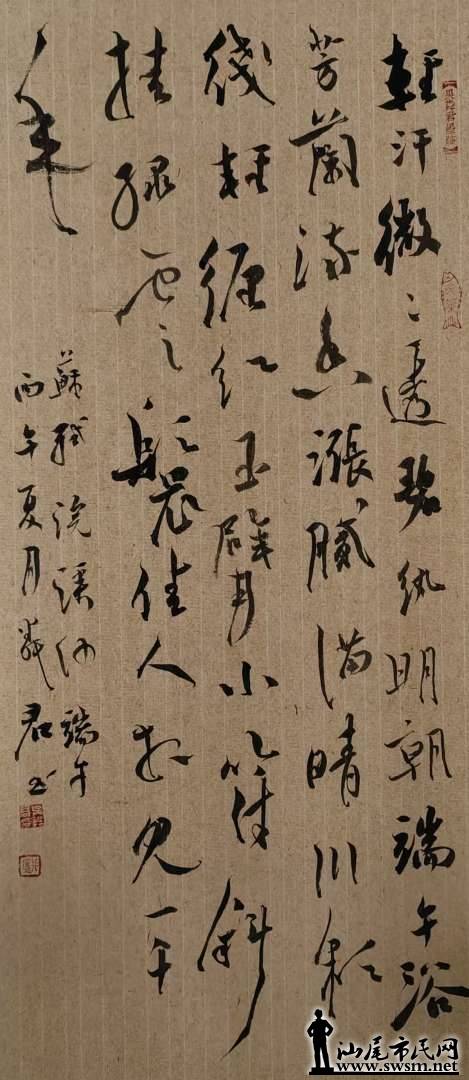 輕汗微々透碧紈明朝端午浴
芳蘭流香漲膩滿晴川彩
綫輕纏紅玉臂小符斜
挂綠雲鬟佳人相見一千
年
蘇軾浣溪沙端午
丙午夏月君书
汕尾市民网
www.swsm.net